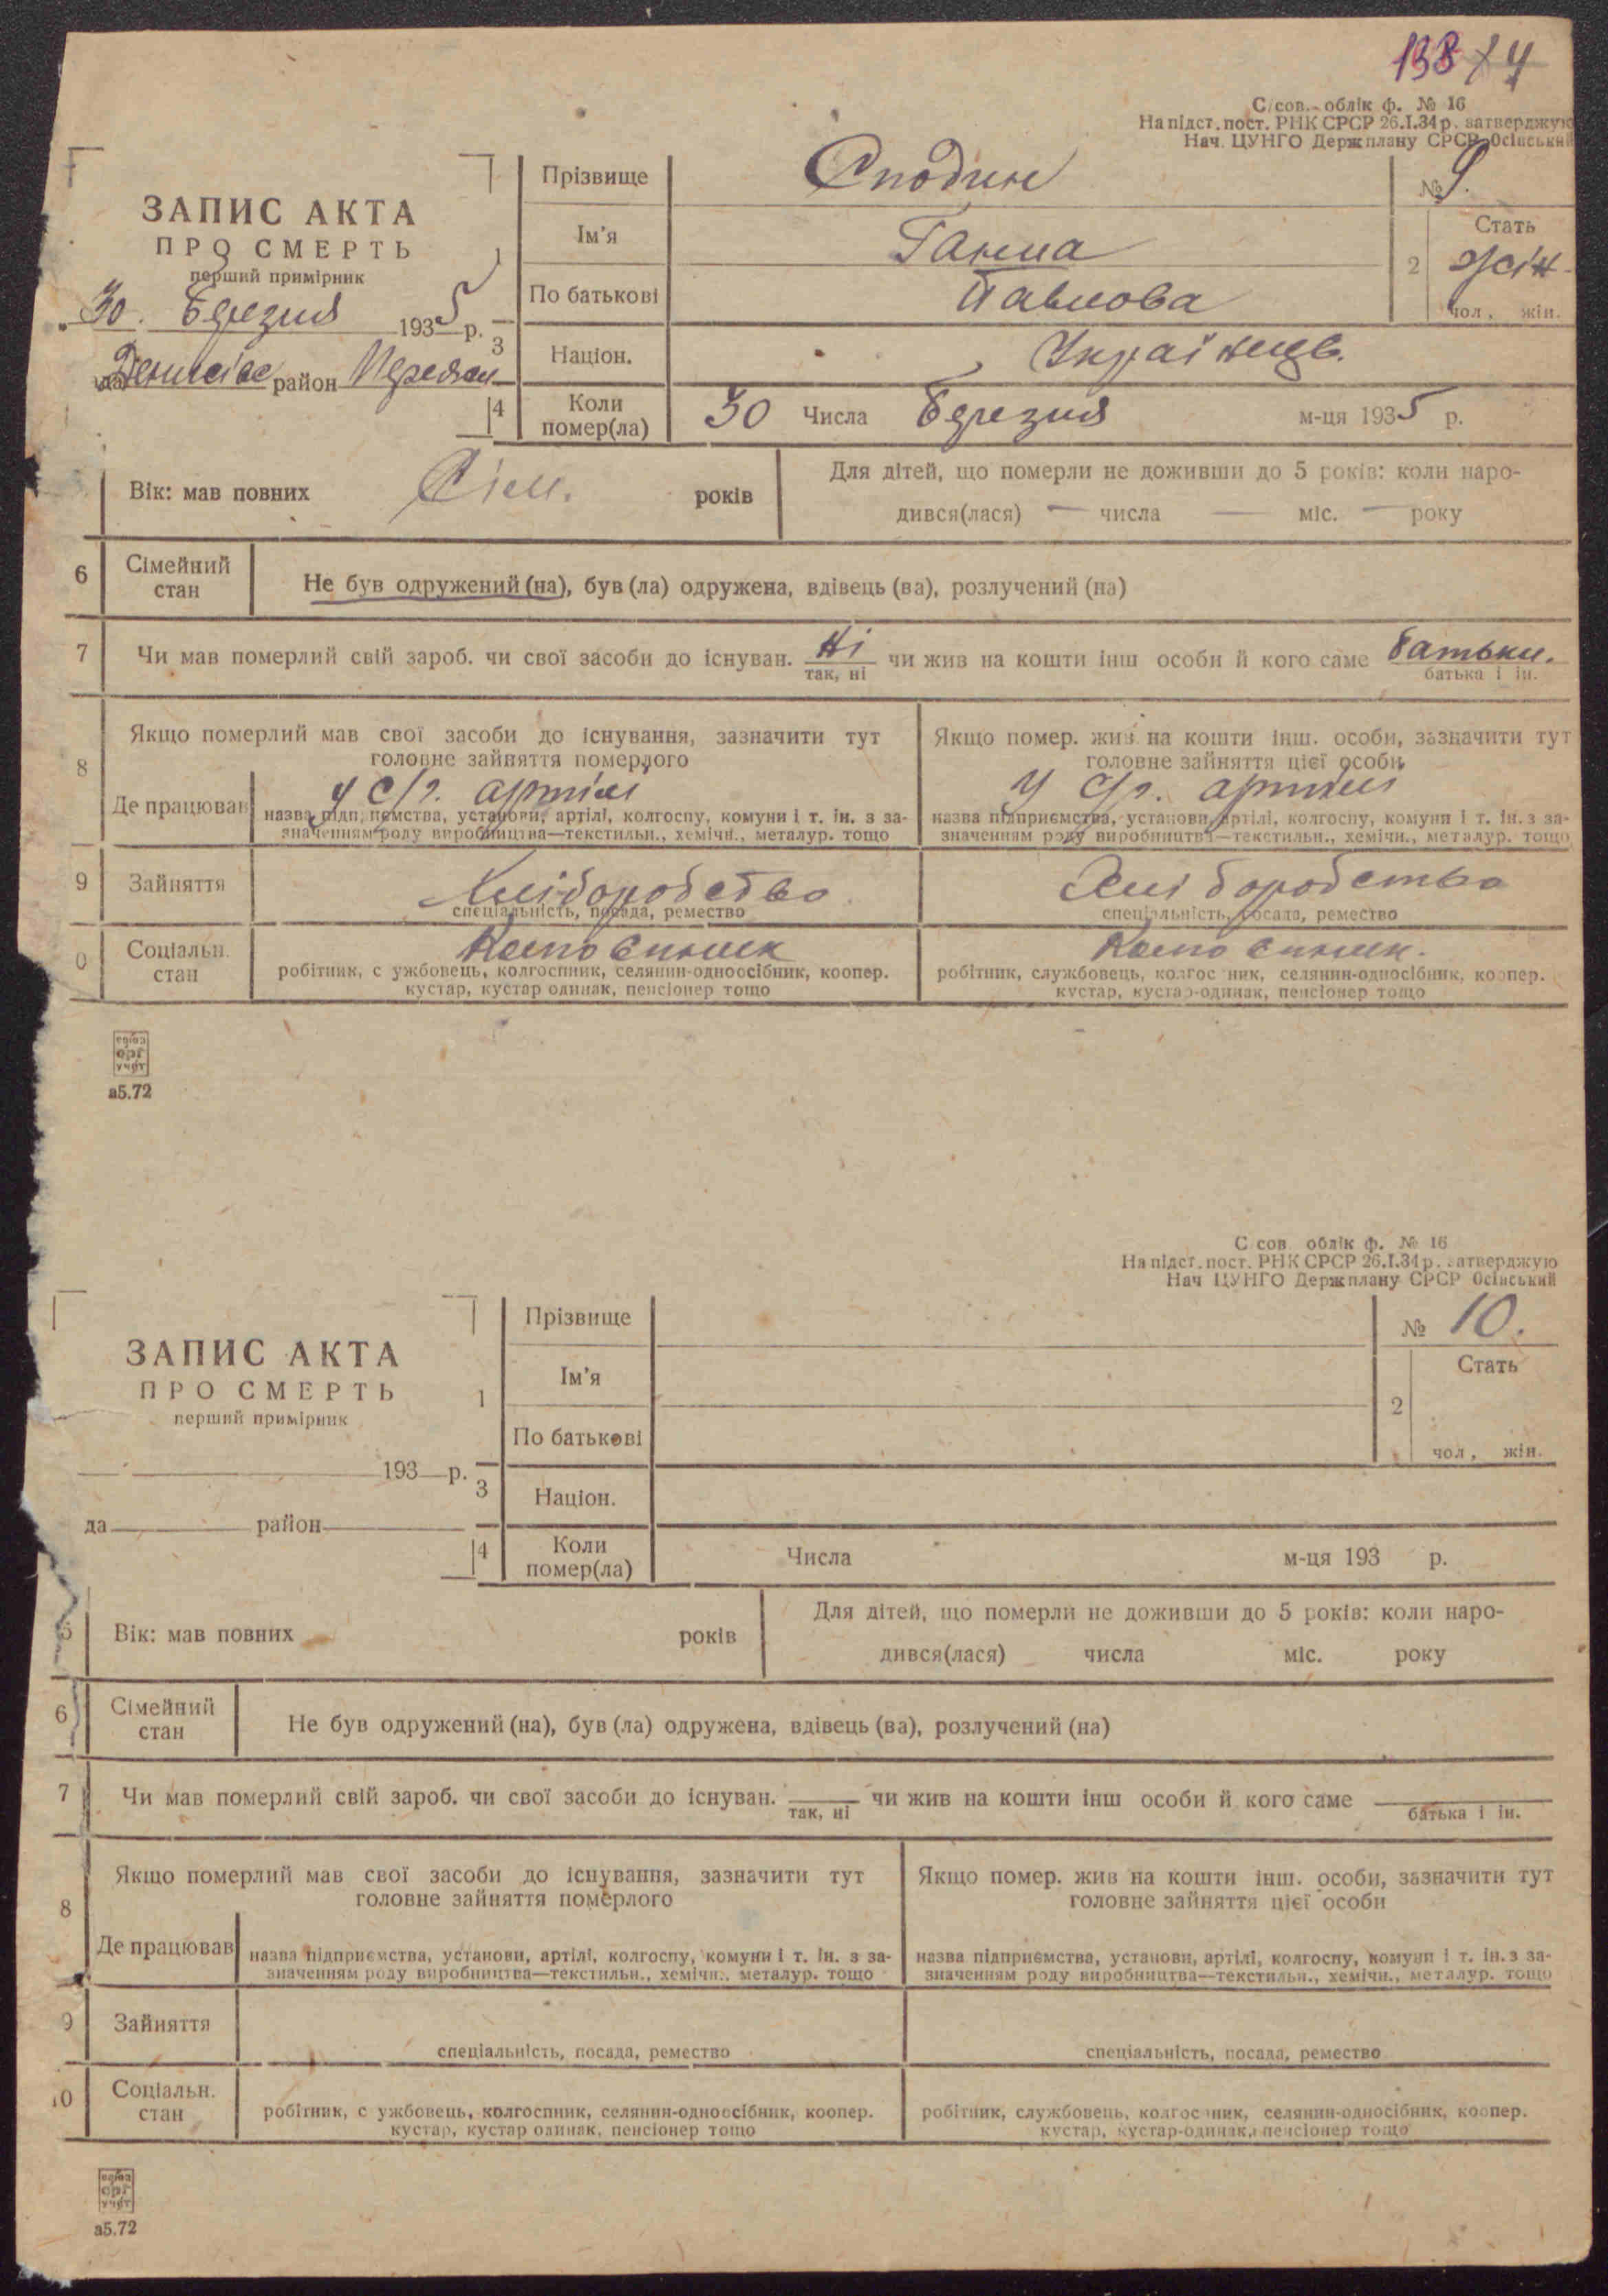 138 74
С/сов. облік ф. № 16
На підст. пост. РНК СРСР 26.I.34р. затверджую
Нач. ЦУНГО Держплану СРСР Осінський
ЗАПИС АКТА
ПРО СМЕРТЬ
перший примірник
30. Березня 1935 р.
район
1 Прізвище Сподин № 9.
Ім'я Ганна
По батькові Павлова
2 Стать жін.
чол, жін.
3 Націон. Українець.
4 Коли помер(ла) 30 Числа Березня м-ця 1935 р.
Вік: мав повних Сім. років
Для дітей, що померли не доживши до 5 років: коли наро-
дився(лася) — числа — міс. — року
6 Сімейний стан Не був одружений (на), був (ла) одружена, вдівець (ва), розлучений (на)
7 Чи мав померлий свій зароб. чи свої засоби до існуван. Ні чи жив на кошти інш особи й кого саме батьки.
так, ні батька і ін.
8 Якщо померлий мав свої засоби до існування, зазначити тут
головне зайняття померлого
Якщо помер. жив на кошти інш. особи, зазначити тут
головне зайняття цієї особи
Де працював у с/г. артілі
у с/г. артілі
назва підп; ємства, установи, артілі, колгоспу, комуни і т. ін. з за-
значенням роду виробництва—текстильн., хемічн., металур. тощо
назва підприємства, установи, артілі, колгоспу, комуни і т. ін. з за-
значенням роду виробництва—текстильн., хемічн., металур. тощо
9 Зайняття Хліборобство
Хліборобство
спеціальність, посада, ремество
спеціальність, посада, ремество
0 Соціальн. стан
робітник, с ужбовець, колгоспник, селянин-одноосібник, коопер.
кустар, кустар одинак, пенсіонер тощо
робітник, службовець, колгос ник, селянин-односібник, коопер.
кустар, кустар-одинак, пенсіонер тощо
союз
орг
учет
а5.72
С сов. облік ф. № 16
На підст. пост. РНК СРСР 26.I.34р. затверджую
Нач ЦУНГО Держплану СРСР Осінський
ЗАПИС АКТА
ПРО СМЕРТЬ
перший примірник
193 р.
да район
1 Прізвище № 10.
Ім'я
По батькові
2 Стать
чол, жін.
3 Націон.
4 Коли помер(ла) Числа м-ця 193 р.
5 Вік: мав повних років
Для дітей, що померли не доживши до 5 років: коли наро-
дився(лася) числа міс. року
6 Сімейний стан Не був одружений (на), був (ла) одружена, вдівець (ва), розлучений (на)
7 Чи мав померлий свій зароб. чи свої засоби до існуван. чи жив на кошти інш особи й кого саме
так, ні батька і ін.
8 Якщо померлий мав свої засоби до існування, зазначити тут
головне зайняття померлого
Якщо помер. жив на кошти інш. особи, зазначити тут
головне зайняття цієї особи
Де працював
назва підприємства, установи, артілі, колгоспу, комуни і т. ін. з за-
значенням роду виробництва—текстильн., хемічн., металур. тощо
назва підприємства, установи, артілі, колгоспу, комуни і т. ін. з за-
значенням роду виробництва—текстильн., хемічн., металур. тощо
9 Зайняття
спеціальність, посада, ремество
спеціальність, посада, ремество
10 Соціальн. стан
робітник, с ужбовець, колгоспник, селянин-одноосібник, коопер.
кустар, кустар одинак, пенсіонер тощо
робітник, службовець, колгос ник, селянин-односібник, коопер.
кустар, кустар-одинак, пенсіонер тощо
союз
орг
учет
а5.72